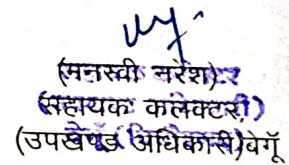 (मनस्वी नरेश)
(सहायक कलेक्टर)
(उपखण्ड अधिकारी)बेगूँ